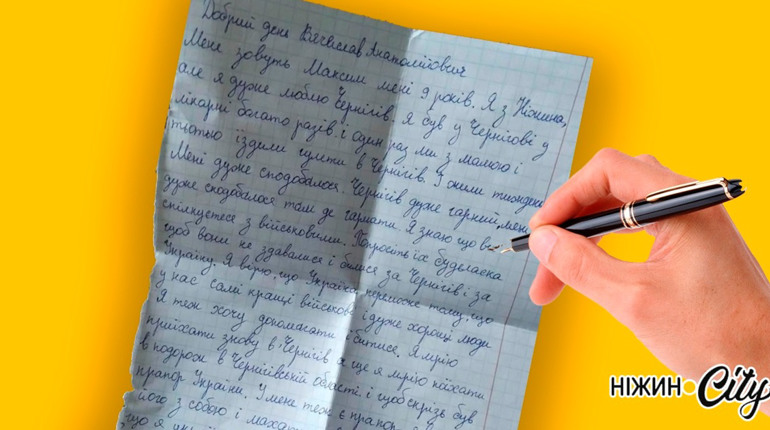 Добрий день Вячеслав Анатолійович
Мене зовуть Максим мені 9 років. Я з Ніжина,
але я дуже люблю Чернігів. Я був у Чернігові у
лікарні багато разів і один раз ми з мамою і
тьотью їздили гуляти в Чернігів.
Мені дуже сподобалося. Чернігів дуже гарний, мені
дуже сподобалося там де гармати. Я знаю що ви
спілкуєтеся з військовими. Попросіть їх будьласка
щоб вони не здавалися і билися за Чернігів і за
Україну. Я вірю, що Україна переможе тому, що
у нас самі кращі військові і дуже хороші люди
Я теж хочу допомагати і битися. Я мрію
приїхати знову в Чернігів а ще я мрію поїхати
в подорож в Чернігівській області і щоб скрізь був
прапор України. У мене теж є прапор
його з собою і
що я
НІЖИН City